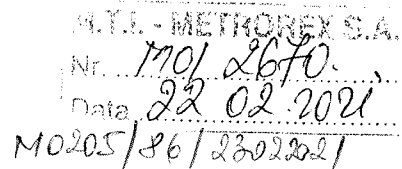 M.T.I. - METROREX S.A.
Nr. M01 2670.
Data 22 02 2021
M0205/86/23022021